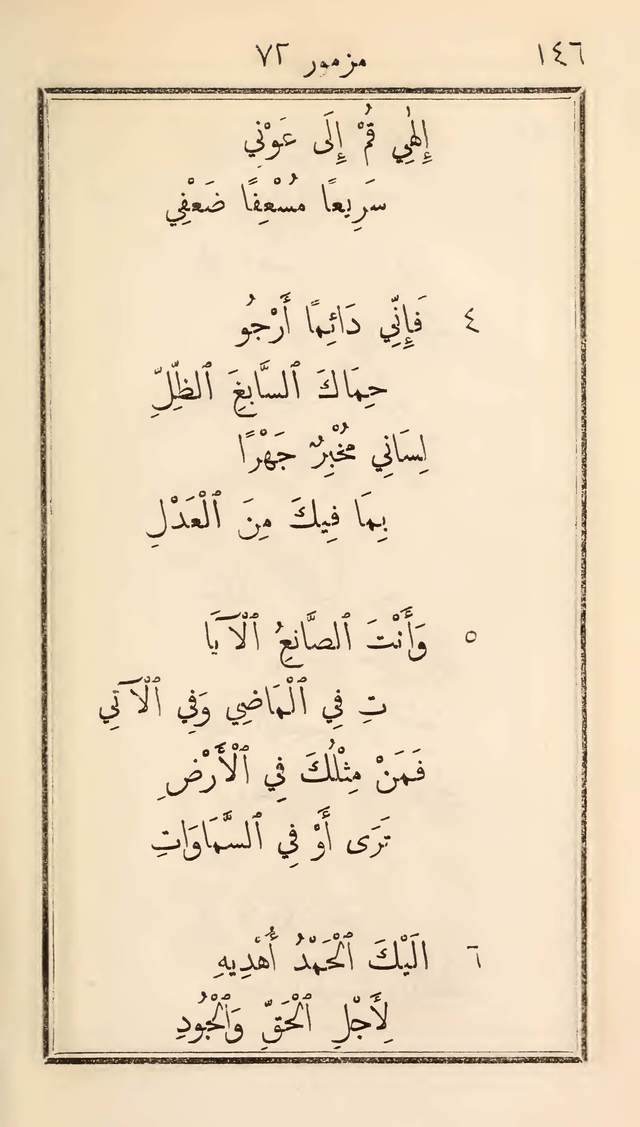 ١٤٦ مزمور ٧٢
إِلٰهِي قُمْ إِلَى عَوْنِي
سَرِيعًا مُسْعِفًا ضَعْفِي
٤ فَإِنِّي دَائِمًا أَرْجُو
حِمَاكَ ٱلسَّابِغَ ٱلظِّلِّ
لِسَانِي مُخْبِرٌ جَهْرًا
بِمَا فِيكَ مِنَ ٱلْعَدْلِ
٥ وَأَنْتَ ٱلصَّانِعُ ٱلْآيَا
تِ فِي ٱلْمَاضِي وَفِي ٱلْآتِي
فَمَنْ مِثْلُكَ فِي ٱلْأَرْضِ
تَرَى أَوْ فِي ٱلسَّمَاوَاتِ
٦ الَيْكَ ٱلْحَمْدُ أُهْدِيهِ
لِأَجْلِ ٱلْحَقِّ وَٱلْجُودِ